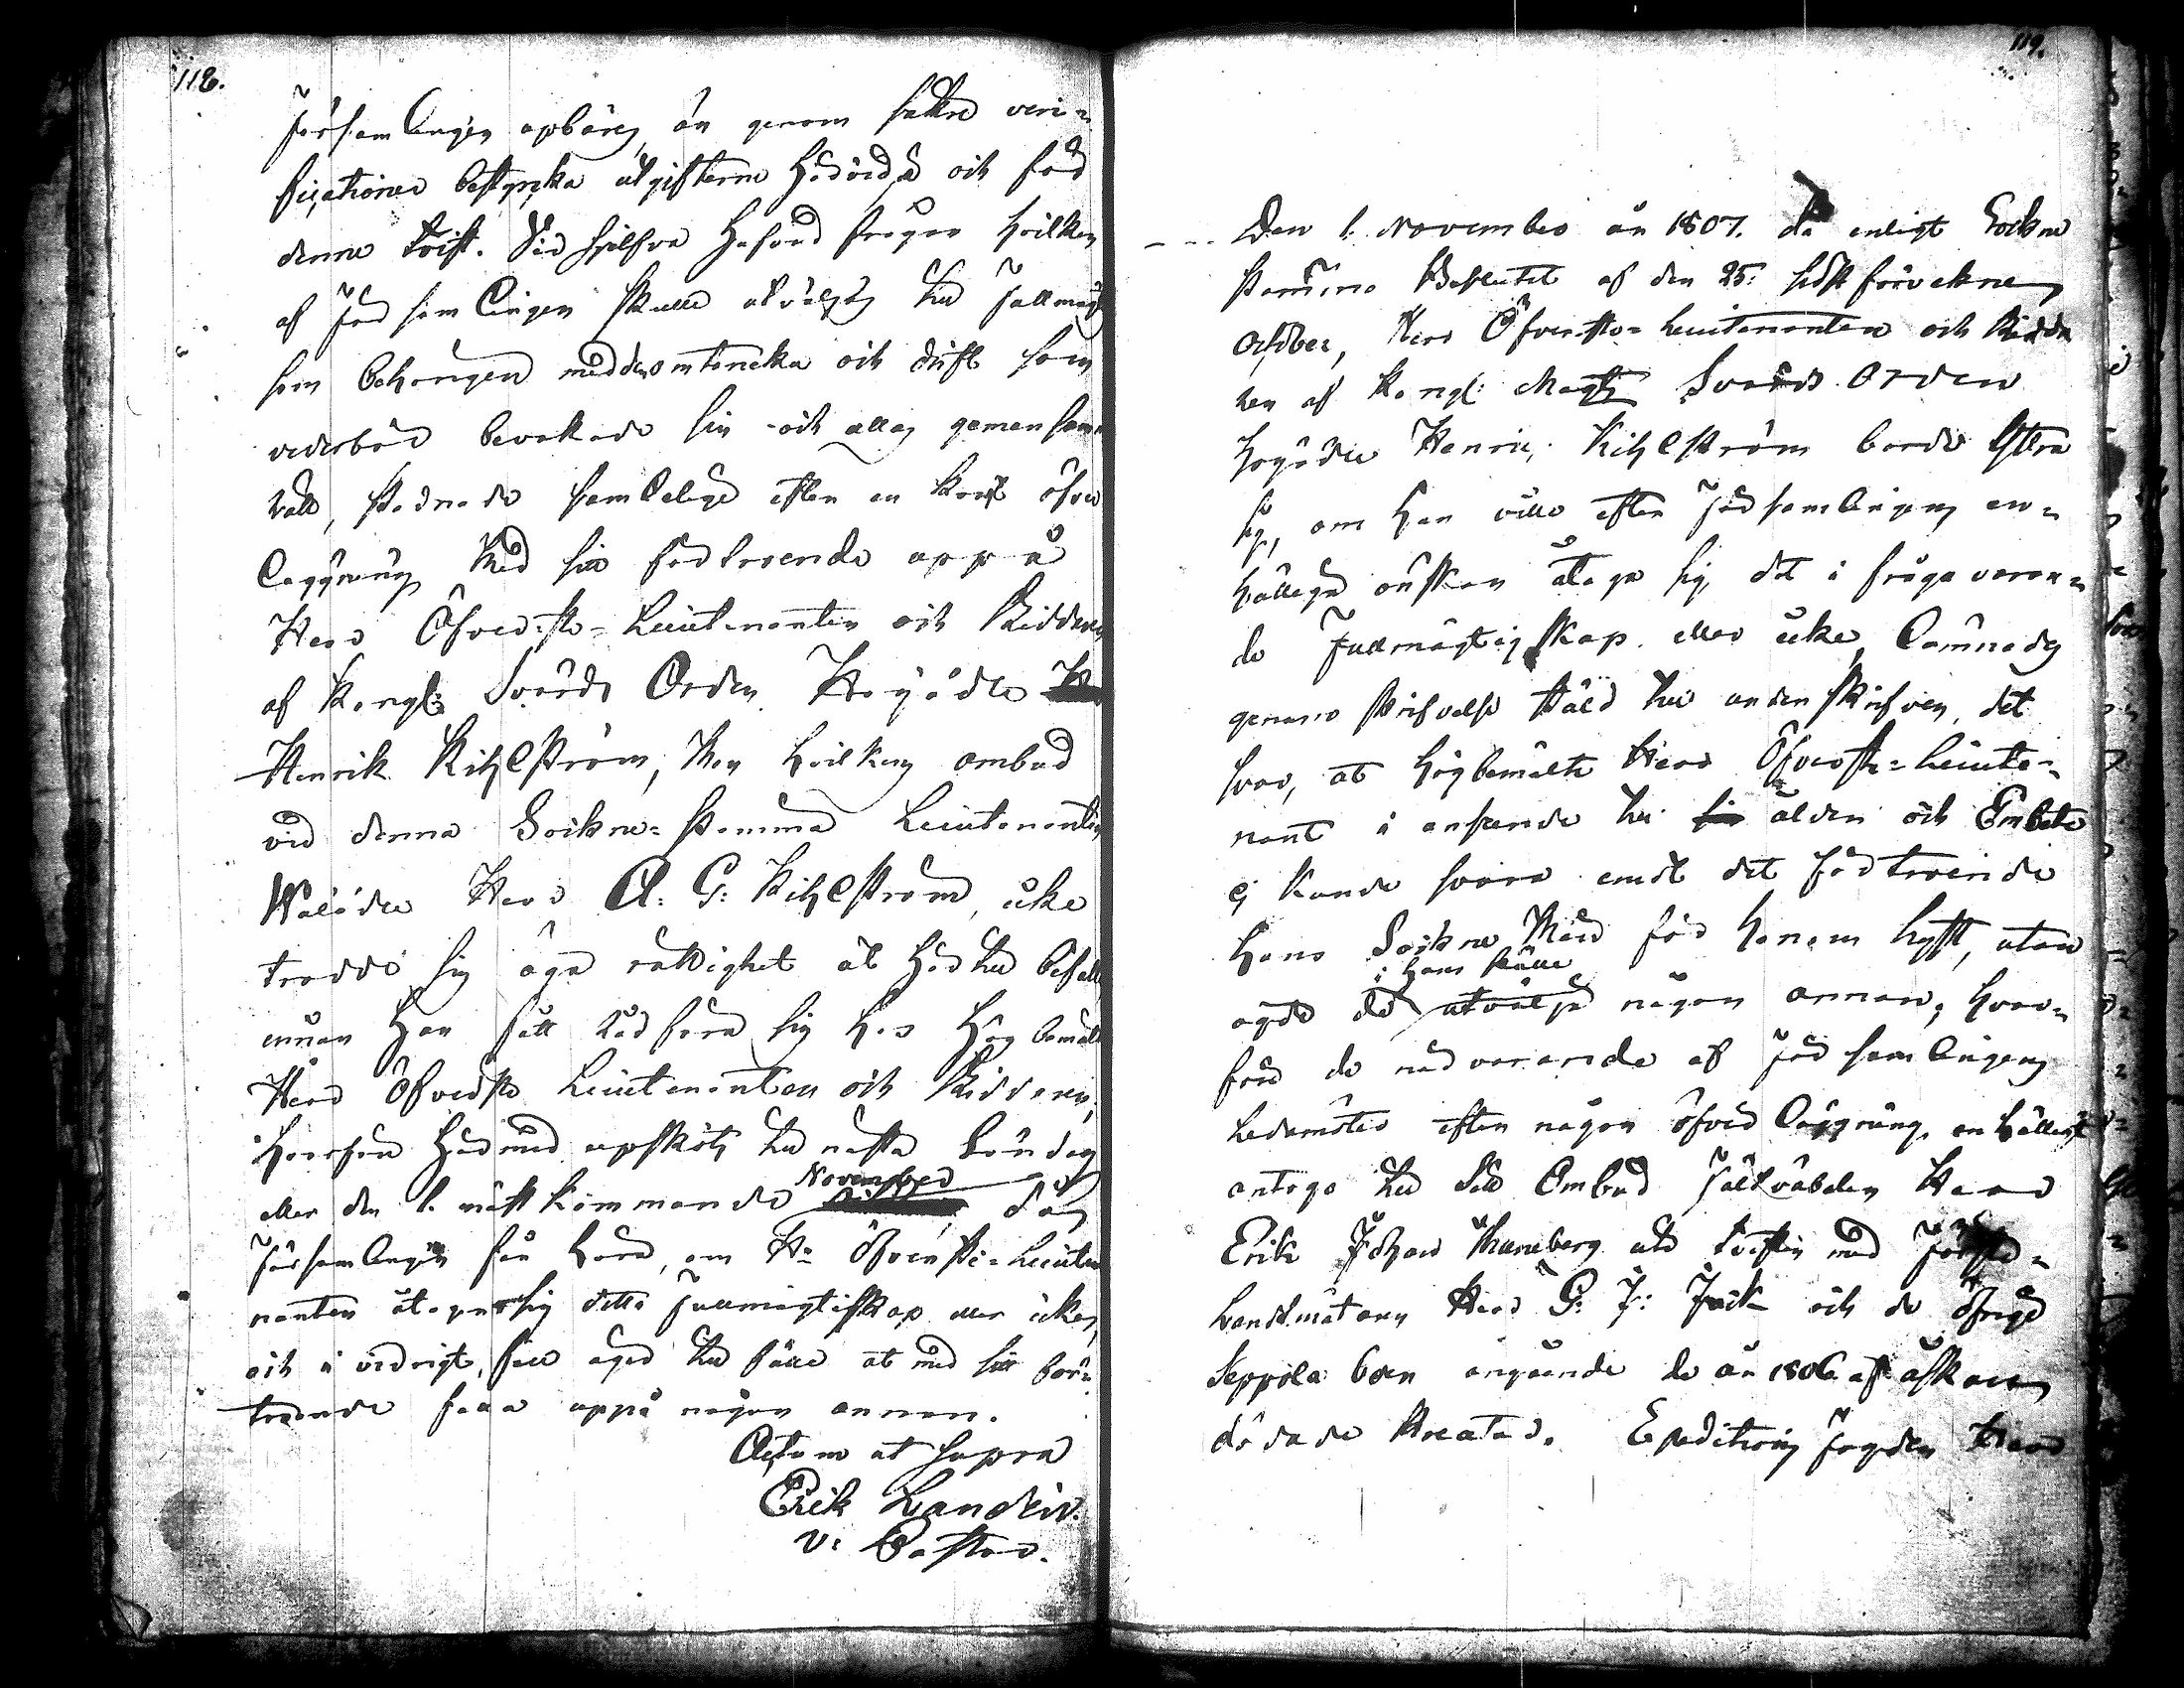 118.
Församlingen upbäres, än genom sattre veri=
ficationer bestyrka utgifterne härördra och för
denne tvist. Vid sjelfva häfvas frågan hvilken
af Församlingen skulle utväljas till Fullmägt
som behörigen med den omtancka och drift som
vederbör bevakade sin och allas gemensamma
rätt, stadnade samtelige efter en kort öfver
läggning med sitt förtroende uppå
Herr Öfverste=Lieutenanten och Riddaren
af Kongl: Svärds Orden Högädle
Henrik Kihlström, Men hvilkens ombud
vid denna Sockne=stämma Lieutenanten
Wälädle Herr A: G: Kihlström, icke
trodde sig äga rättighet at härtill
innan Han fått rådföra sig hos Hög bemälte
Herr Öfverste Lieutenanten och Riddaren,
Hvarföre härmed upsköts till nästa Söndag
eller den 1. nästkommande November då
Församlingen får höra, om Hr Öfverste=Lieute
nanten åtager sig detta Fullmägtigskap eller icke,
och i vidrigt fall äger till fälle at med sitt för=
troende falla uppå någon annan.
Actum ut supra
Erik Landzin.
V: Pastor.
119.
Den 1. November år 1807. då enligt Sockne
stämmo Beslutet af den 25: sidst förvekne
October, Herr Öfverste=Lieutenanten och Ridda
ren af Kongl: Maijts Svärds Orden
Högädle Henric Kihlström borde yttra
sig, om Han ville efter Församlingens en=
hällega önskan åtaga sig det i fråga varan=
de Fullmägtigskap eller icke, lämnades
genom skrifvelse stäld till undenskrifven, det
svar, at högbemälte Herr Öfverste=Lieute=
nant i anseende till ålder och Embete
ej kunde svara emot det förtroende
Hans Sockne Män för honom hyst, utan
i hans ställe
ägde de utvälja någon annan; hvar=
före de närvarande af Församlingens
Ledamöter efter någon öfver läggning enhälligt
antoga till sitt Ombud Fältväbelen Herr
Erik Johan Thuneberg uti tvisten med Förste=
Landtmätaren Herr G: J: Jack och de öfrige
Seppäla boer angående de år 1806 af åskan
dödade Kreatur. Expeditions Fogden Herr